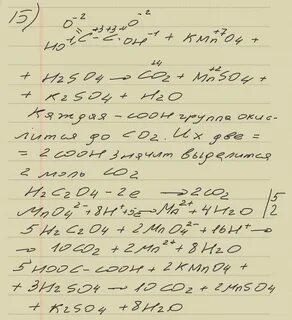 15)
O⁻² O⁻²
HO⁻¹ C⁺³ – C⁺³ OH⁻¹ + KMn⁺⁷O4 +
+ H2SO4 → C⁺⁴O2 + Mn⁺²SO4 +
+ K2SO4 + H2O
Каждая – COOH группа окис-
лится до CO2. Их две =
= 2 COOH значит выделится
2 моль CO2
H2C2O4 – 2e → 2CO2 | 5
MnO4²⁻ + 8H⁺ + 5e → Mn²⁺ + 4H2O | 2
5H2C2O4 + 2MnO4²⁻ + 16H⁺ →
→ 10CO2 + 2Mn²⁺ + 8H2O
5HOOC–COOH + 2KMnO4 +
+ 3H2SO4 → 10CO2 + 2MnSO4
+ K2SO4 + 8H2O